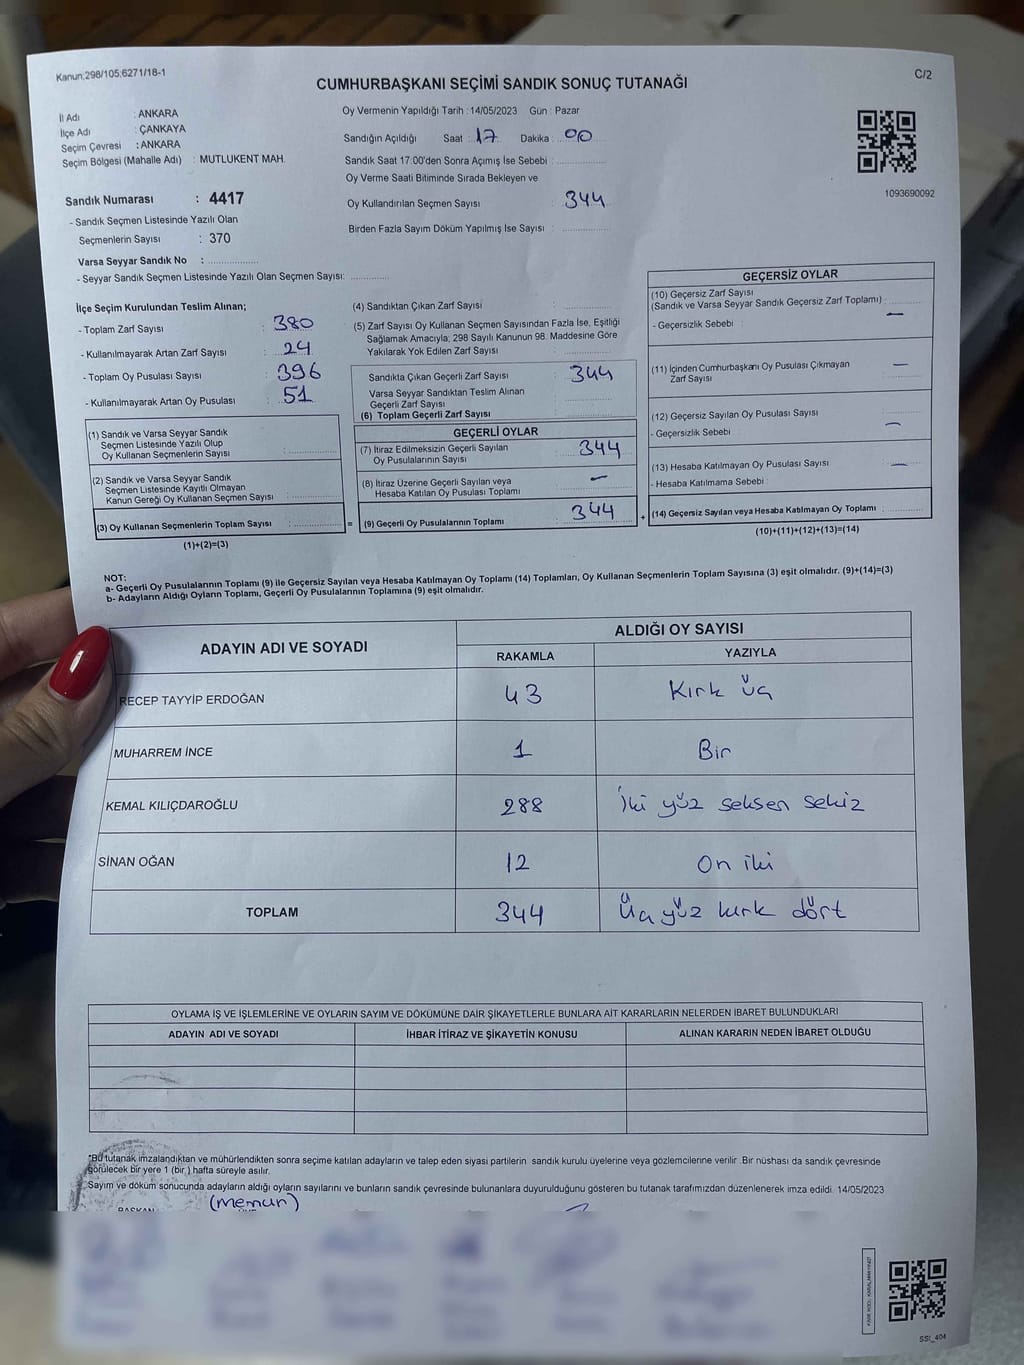 Kanun:298/105;6271/18-1
C/2
CUMHURBAŞKANI SEÇİMİ SANDIK SONUÇ TUTANAĞI
İl Adı : ANKARA
İlçe Adı : ÇANKAYA
Seçim Çevresi : ANKARA
Seçim Bölgesi (Mahalle Adı) : MUTLUKENT MAH.
Oy Vermenin Yapıldığı Tarih : 14/05/2023 Gün : Pazar
Sandığın Açıldığı Saat : 17 Dakika : 00
Sandık Saat 17.00'den Sonra Açımış İse Sebebi :
Oy Verme Saati Bitiminde Sırada Bekleyen ve
Oy Kullandırılan Seçmen Sayısı : 344
Birden Fazla Sayım Döküm Yapılmış İse Sayısı :
1093690092
Sandık Numarası : 4417
- Sandık Seçmen Listesinde Yazılı Olan
Seçmenlerin Sayısı : 370
Varsa Seyyar Sandık No :
- Seyyar Sandık Seçmen Listesinde Yazılı Olan Seçmen Sayısı:
İlçe Seçim Kurulundan Teslim Alınan;
- Toplam Zarf Sayısı : 380
- Kullanılmayarak Artan Zarf Sayısı : 24
- Toplam Oy Pusulası Sayısı : 396
- Kullanılmayarak Artan Oy Pusulası : 51
(1) Sandık ve Varsa Seyyar Sandık
Seçmen Listesinde Yazılı Olup
Oy Kullanan Seçmenlerin Sayısı :
(2) Sandık ve Varsa Seyyar Sandık
Seçmen Listesinde Kayıtlı Olmayan
Kanun Gereği Oy Kullanan Seçmen Sayısı :
(3) Oy Kullanan Seçmenlerin Toplam Sayısı :
(1)+(2)=(3)
(4) Sandıktan Çıkan Zarf Sayısı :
(5) Zarf Sayısı Oy Kullanan Seçmen Sayısından Fazla İse, Eşitliği
Sağlamak Amacıyla; 298 Sayılı Kanunun 98. Maddesine Göre
Yakılarak Yok Edilen Zarf Sayısı :
Sandıkta Çıkan Geçerli Zarf Sayısı : 344
Varsa Seyyar Sandıktan Teslim Alınan
Geçerli Zarf Sayısı :
(6) Toplam Geçerli Zarf Sayısı :
GEÇERLİ OYLAR
(7) İtiraz Edilmeksizin Geçerli Sayılan
Oy Pusulalarının Sayısı : 344
(8) İtiraz Üzerine Geçerli Sayılan veya
Hesaba Katılan Oy Pusulası Toplamı : –
= (9) Geçerli Oy Pusulalarının Toplamı : 344
GEÇERSİZ OYLAR
(10) Geçersiz Zarf Sayısı
(Sandık ve Varsa Seyyar Sandık Geçersiz Zarf Toplamı) : –
- Geçersizlik Sebebi :
(11) İçinden Cumhurbaşkanı Oy Pusulası Çıkmayan
Zarf Sayısı : –
(12) Geçersiz Sayılan Oy Pusulası Sayısı : –
- Geçersizlik Sebebi :
(13) Hesaba Katılmayan Oy Pusulası Sayısı : –
- Hesaba Katılmama Sebebi :
+ (14) Geçersiz Sayılan veya Hesaba Katılmayan Oy Toplamı :
(10)+(11)+(12)+(13)=(14)
NOT:
a- Geçerli Oy Pusulalarının Toplamı (9) ile Geçersiz Sayılan veya Hesaba Katılmayan Oy Toplamı (14) Toplamları, Oy Kullanan Seçmenlerin Toplam Sayısına (3) eşit olmalıdır. (9)+(14)=(3)
b- Adayların Aldığı Oyların Toplamı, Geçerli Oy Pusulalarının Toplamına (9) eşit olmalıdır.
ADAYIN ADI VE SOYADI ALDIĞI OY SAYISI
RAKAMLA YAZIYLA
RECEP TAYYİP ERDOĞAN 43 Kırk üç
MUHARREM İNCE 1 Bir
KEMAL KILIÇDAROĞLU 288 İki yüz seksen sekiz
SİNAN OĞAN 12 On iki
TOPLAM 344 Üç yüz kırk dört
OYLAMA İŞ VE İŞLEMLERİNE VE OYLARIN SAYIM VE DÖKÜMÜNE DAİR ŞİKAYETLERLE BUNLARA AİT KARARLARIN NELERDEN İBARET BULUNDUKLARI
ADAYIN ADI VE SOYADI İHBAR İTİRAZ VE ŞİKAYETİN KONUSU ALINAN KARARIN NEDEN İBARET OLDUĞU
*Bu tutanak imzalandıktan ve mühürlendikten sonra seçime katılan adayların ve talep eden siyasi partilerin sandık kurulu üyelerine veya gözlemcilerine verilir. Bir nüshası da sandık çevresinde
görülecek bir yere 1 (bir) hafta süreyle asılır.
Sayım ve döküm sonucunda adayların aldığı oyların sayılarını ve bunların sandık çevresinde bulunanlara duyurulduğunu gösteren bu tutanak tarafımızdan düzenlenerek imza edildi. 14/05/2023
BAŞKAN (memur)
SSİ_404